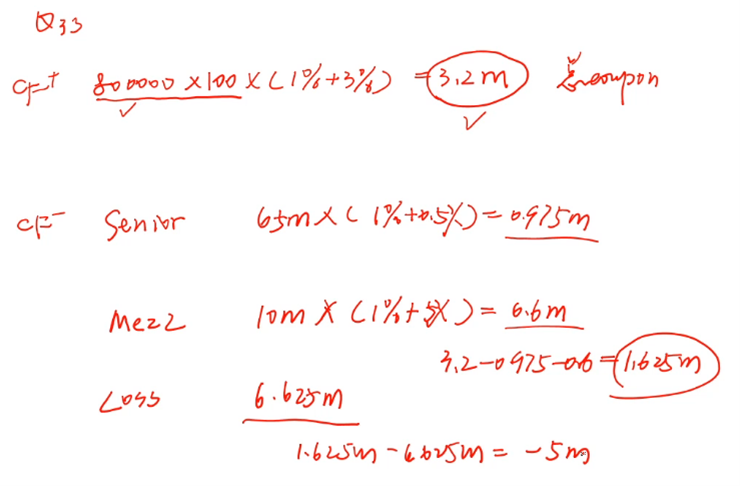 Q33
CF+ 800000 × 100 × (1%+3%) = 3.2m Σcoupon
CF- Senior 65m × (1%+0.5%) = 0.975m
Mezz 10m × (1%+5%) = 0.6m
3.2-0.975-0.6 = 1.625m
Loss 6.625m
1.625m - 6.625m = -5m